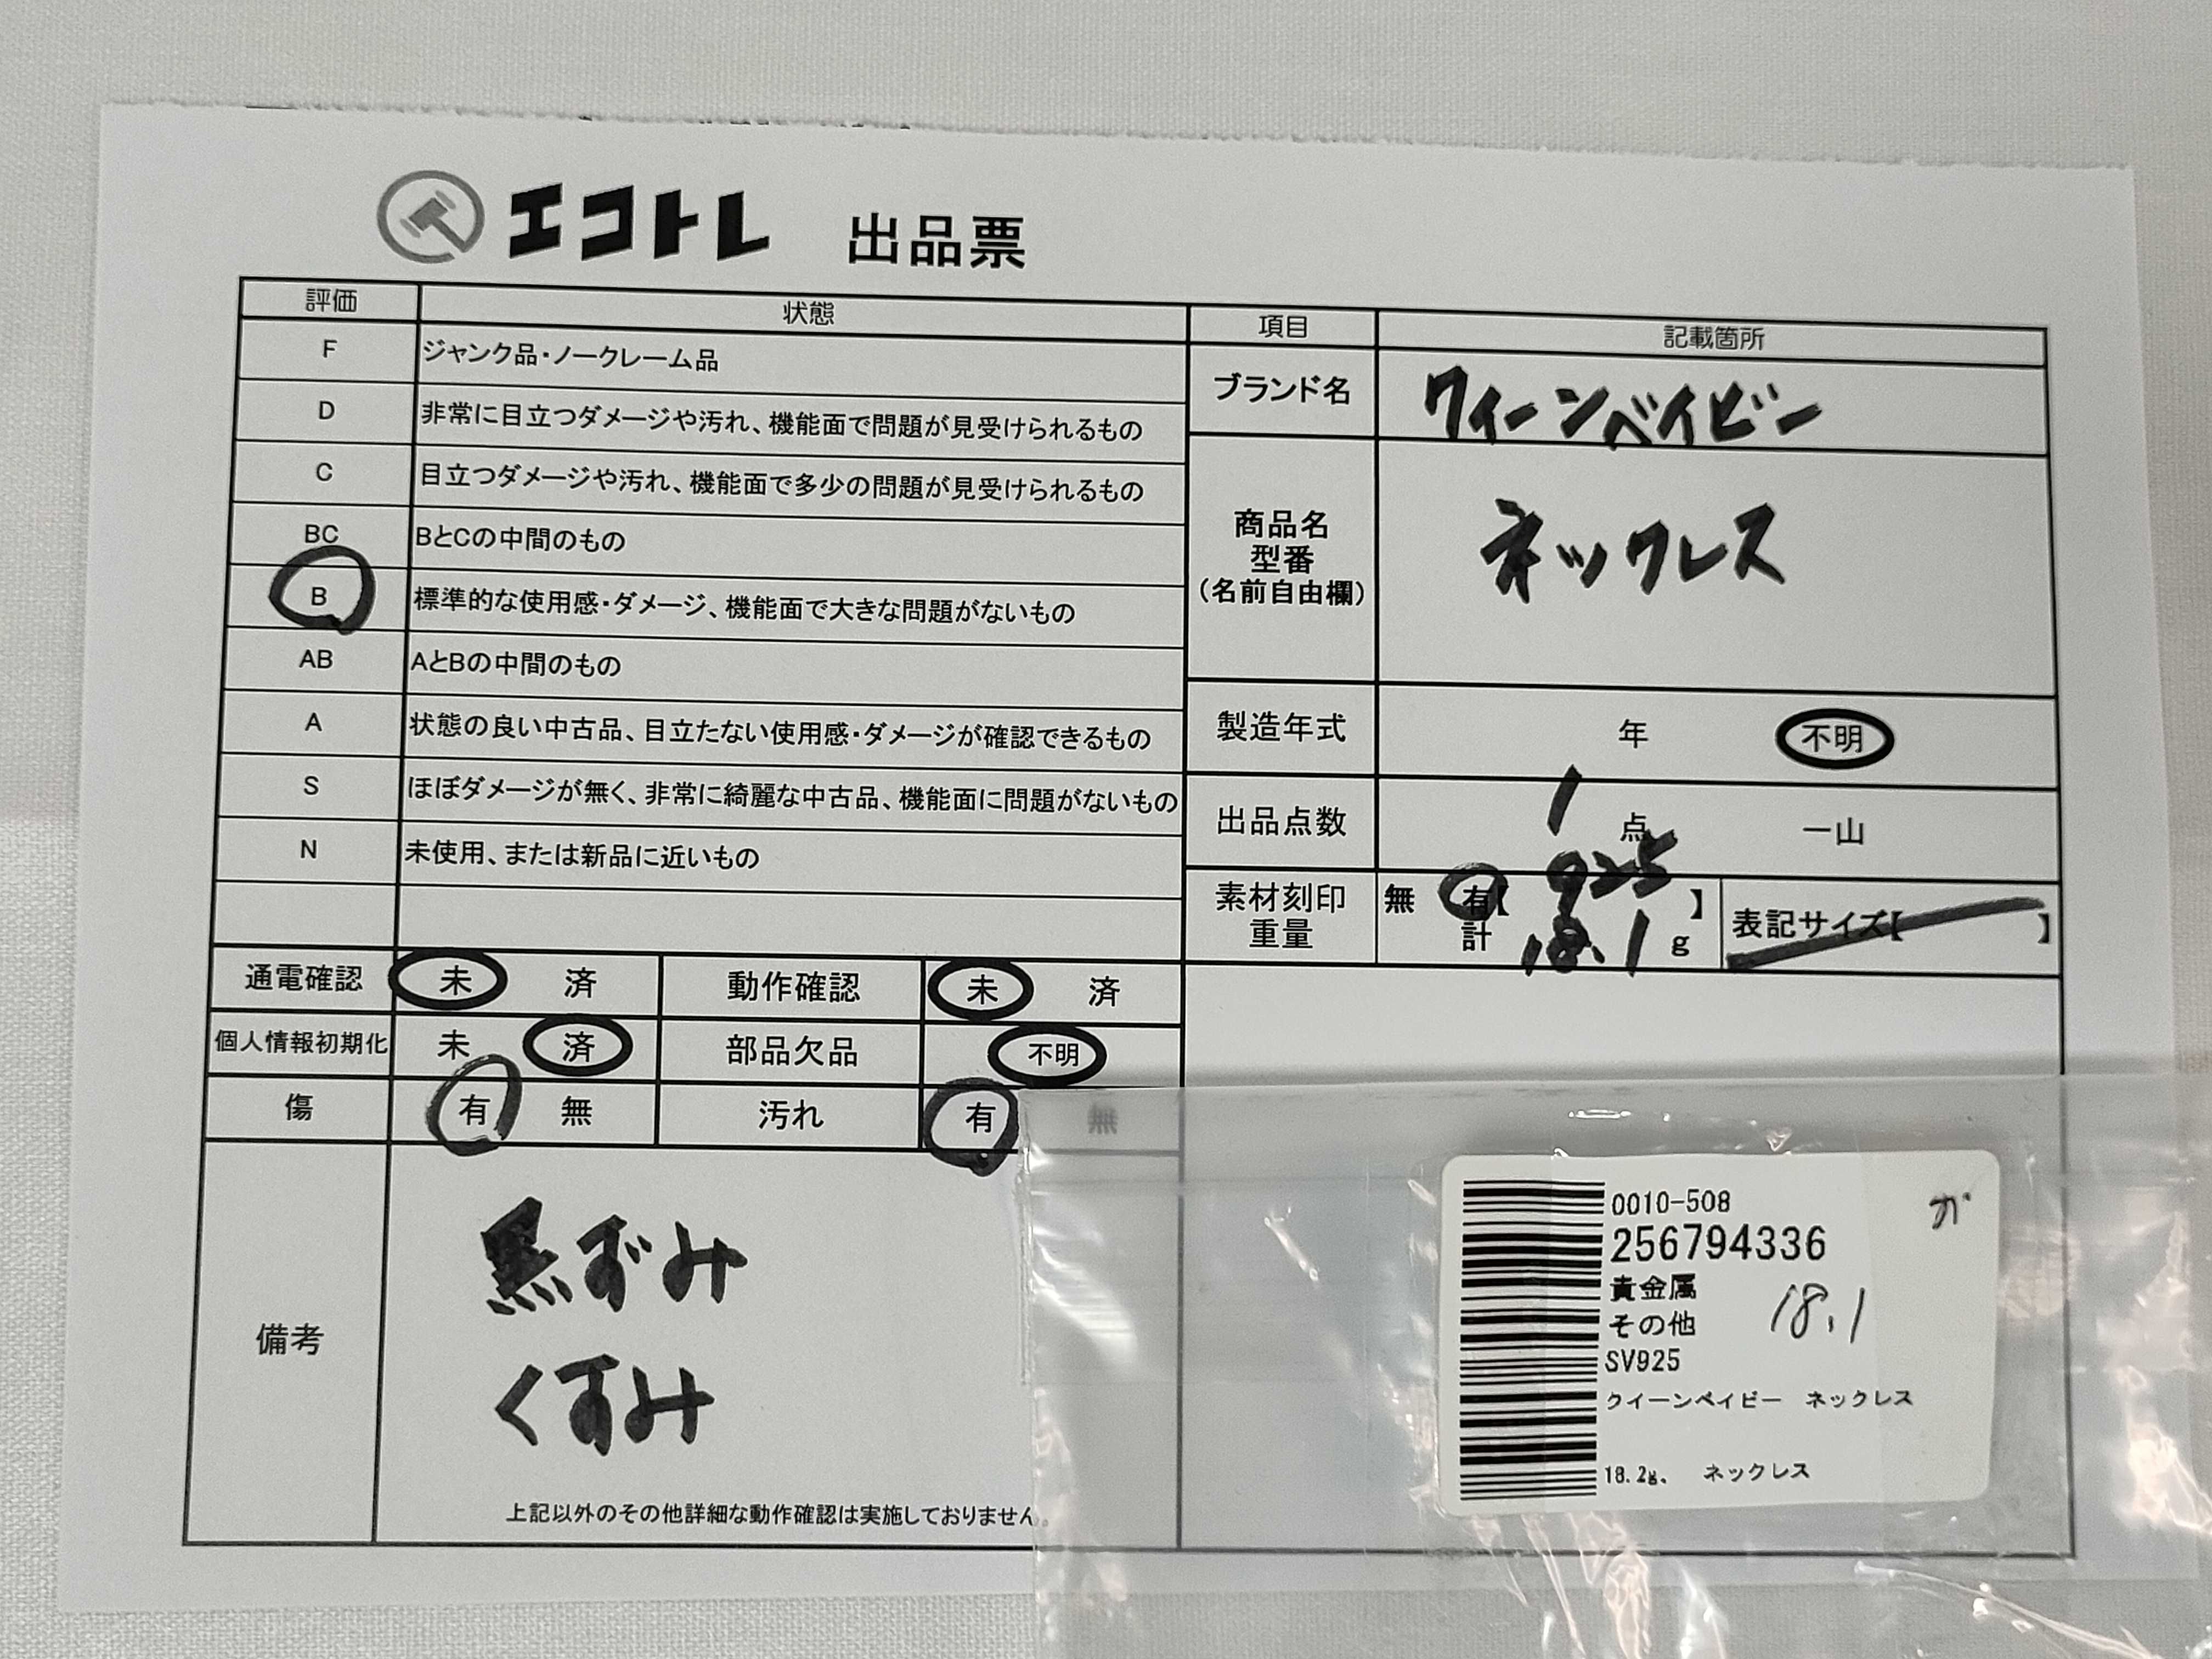 エコトレ 出品票
評価 状態
F ジャンク品・ノークレーム品
D 非常に目立つダメージや汚れ、機能面で問題が見受けられるもの
C 目立つダメージや汚れ、機能面で多少の問題が見受けられるもの
BC BとCの中間のもの
B 標準的な使用感・ダメージ、機能面で大きな問題がないもの
AB AとBの中間のもの
A 状態の良い中古品、目立たない使用感・ダメージが確認できるもの
S ほぼダメージが無く、非常に綺麗な中古品、機能面に問題がないもの
N 未使用、または新品に近いもの
通電確認 未 済 動作確認 未 済
個人情報初期化 未 済 部品欠品 不明
傷 有 無 汚れ 有 無
備考
黒ずみ
くすみ
上記以外のその他詳細な動作確認は実施しておりません。
項目 記載箇所
ブランド名 クイーンベイビー
商品名
型番
(名前自由欄)
ネックレス
製造年式 年 不明
出品点数 1 点 一山
素材刻印 無 有【 925 】
重量 計 18.1 g
表記サイズ【 】
0010-508
256794336
貴金属
その他
SV925
クイーンベイビー ネックレス
18.2g、 ネックレス
が
18.1